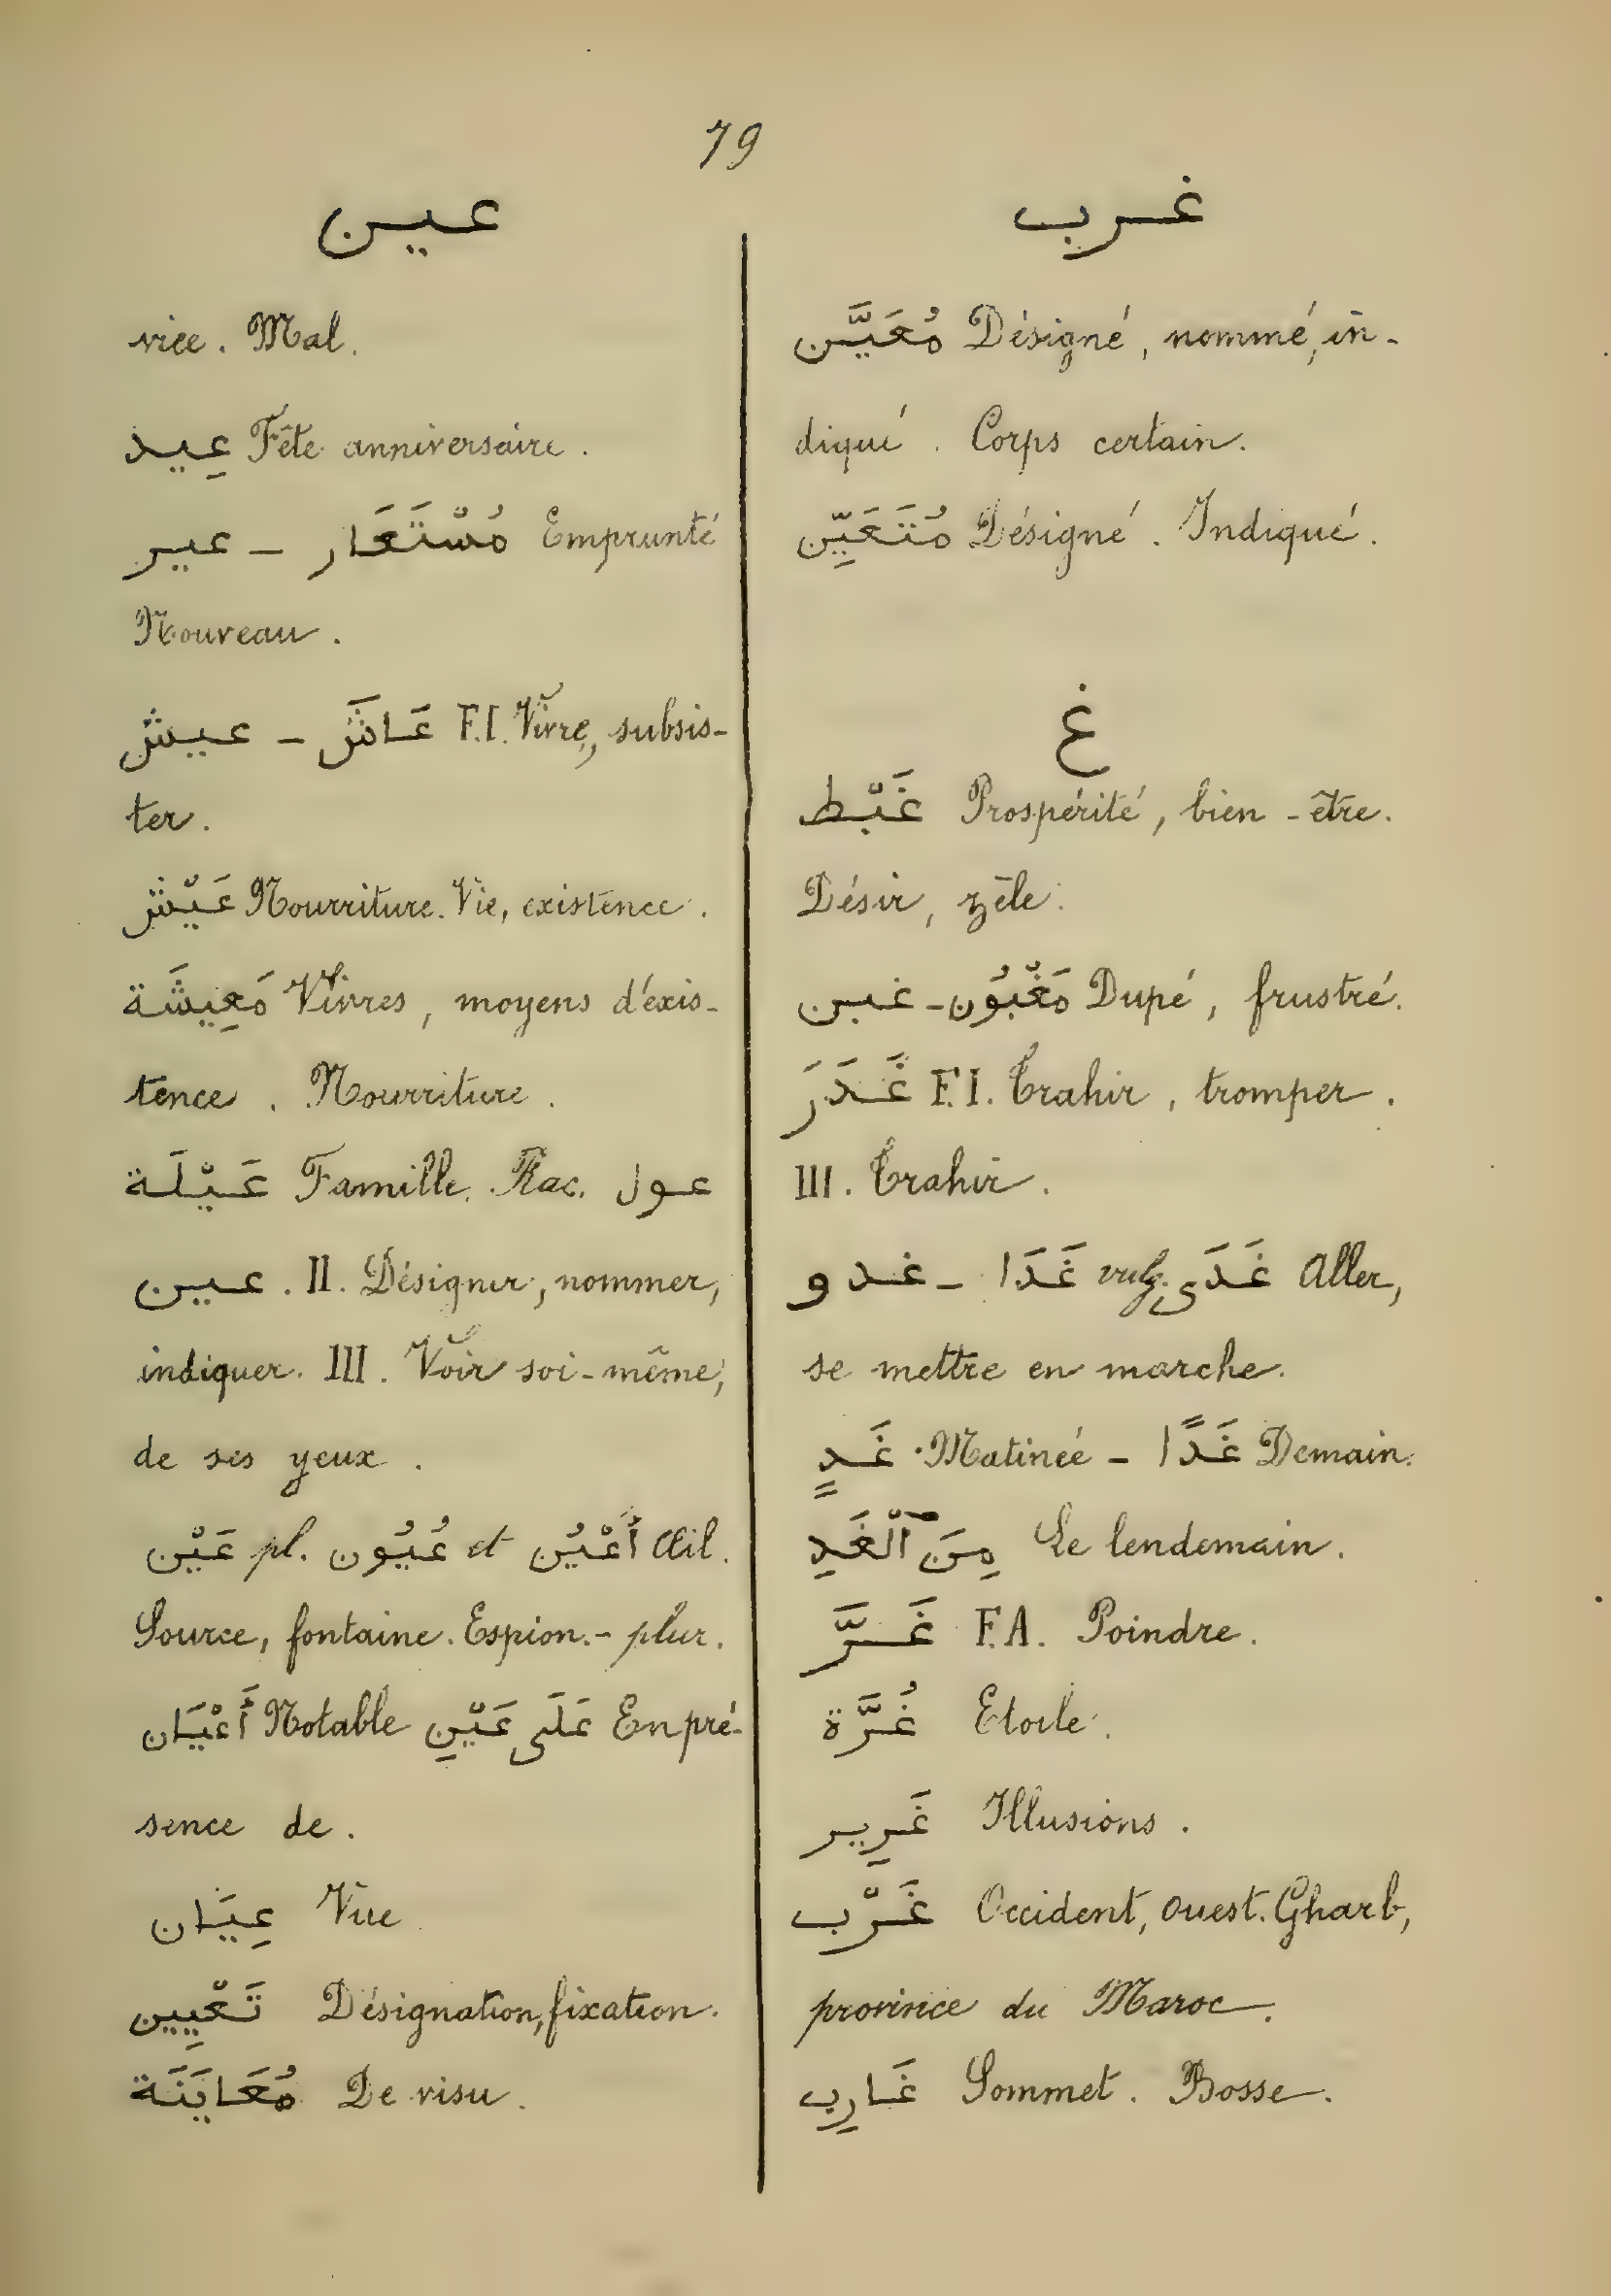 79
عين
vice. Mal.
عِيد Fête anniversaire.
عير – مُسْتَعَار Emprunté
Nouveau.
عيش – عَاشَ F.I. Vivre, subsis-
ter.
عَيْش Nourriture. Vie, existence.
مَعِيشَة Vivres, moyens d'éxis-
tence. Nourriture.
عَيْلَة Famille. Rac. عول
عين. II. Désigner, nommer,
indiquer. III. Voir soi-même,
de ses yeux.
عَيْن pl. عُيُون et أَعْيُن Œil.
Source, fontaine. Espion. – plur.
أَعْيَان Notable عَلَى عَيْنِ En pré-
sence de.
عِيَان Vue
تَعْيِين Désignation, fixation.
مُعَايَنَة De visu.
غرب
مُعَيَّن Désigné, nommé, in-
diqué. Corps certain.
مُتَعَيِّن Désigné. Indiqué.
غ
غَبْط Prospérité, bien-être.
Désir, zèle.
غبن – مَغْبُون Dupé, frustré.
غَدَرَ F.I. Trahir, tromper.
III. Trahir.
غدو – غَدَا vulg. غَدَى Aller,
se mettre en marche.
غَدٍ Matinée – غَدًا Demain.
مِنَ ٱلْغَدِ Le lendemain.
غَرَّ F.A. Poindre.
غُرَّة Etoile.
غَرِير Illusions.
غَرْب Occident, ouest. Gharb,
province du Maroc.
غَارِب Sommet. Bosse.